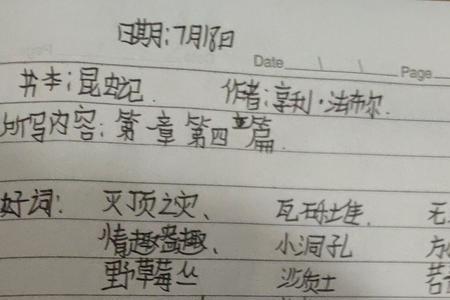 日期:7月18日
Date \ \ Page
书本:昆虫记 作者:亨利·法布尔
所写内容:第一章第四章篇
好词: 灭顶之灾、 瓦砾堆、 无
情趣盎趣、 小洞孔
野草莓丛 沙质土 若